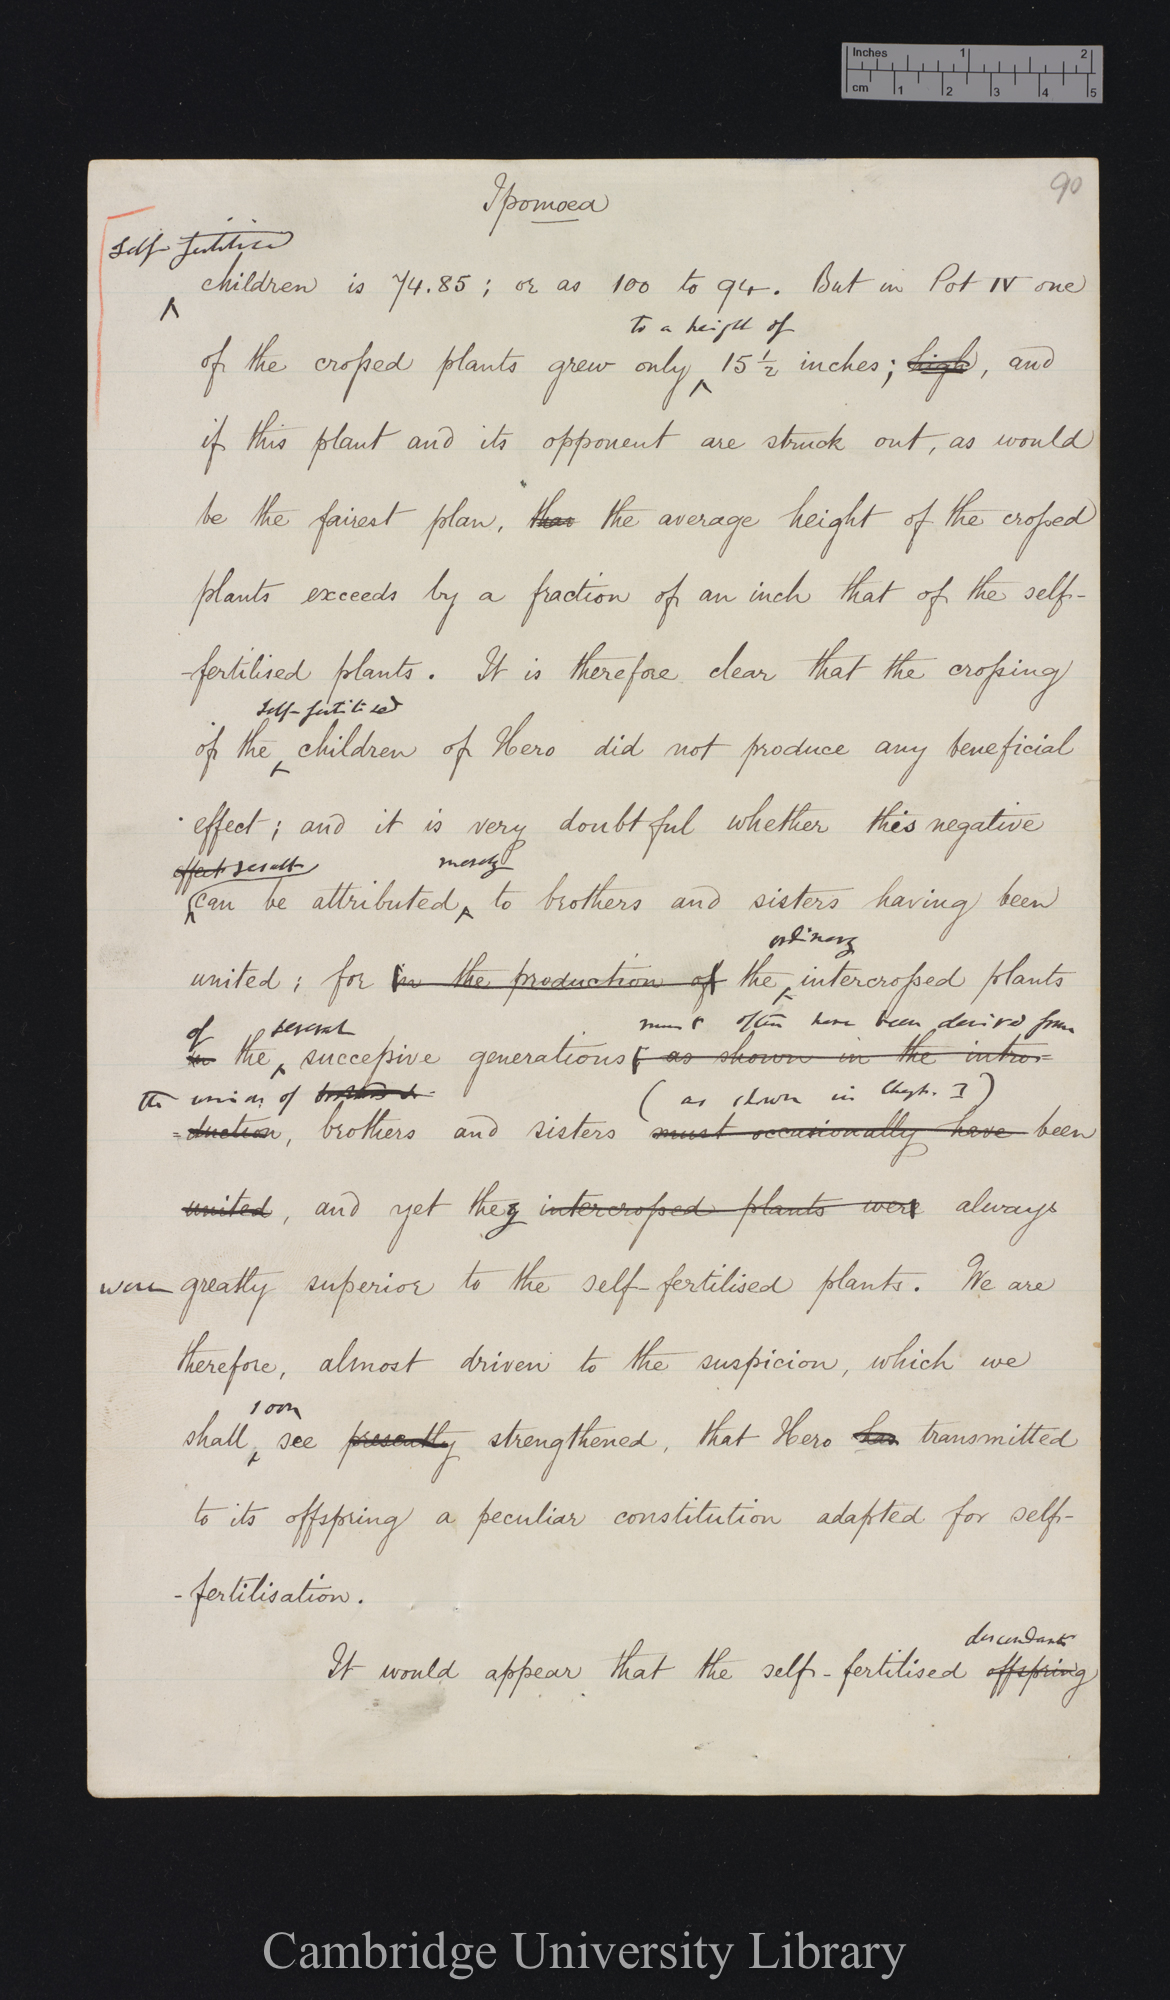 Inches 1 2
cm 1 2 3 4 5
90
Ipomoea
Self-fertilised
children is 74.85; or as 100 to 94. But in Pot IV one
to a height of
of the crossed plants grew only 15 1/2 inches; high, and
if this plant and its opponent are struck out, as would
be the fairest plan, the average height of the crossed
plants exceeds by a fraction of an inch that of the self-
-fertilised plants. It is therefore clear that the crossing
self-fertilised
of the children of Hero did not produce any beneficial
effect; and it is very doubtful whether this negative
effect result merely
can be attributed to brothers and sisters having been
ordinary
united; for in the production of the intercrossed plants
of several must often have been derived from
in the successive generations, as shown in the intro-
the union of (as shown in Chap. I)
=duction, brothers and sisters must occasionally have been
united, and yet they intercrossed plants were always
were greatly superior to the self-fertilised plants. We are
therefore, almost driven to the suspicion, which we
soon
shall see presently strengthened, that Hero has transmitted
to its offspring a peculiar constitution adapted for self-
-fertilisation.
descendants
It would appear that the self-fertilised offspring
Cambridge University Library